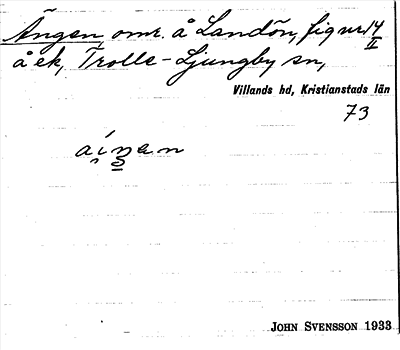 Ängen, omr. å Landön, fig nr 14
II
å ek, Trolle-Ljungby sn,
Villands hd, Kristianstads län
73
JOHN SVENSSON 1933